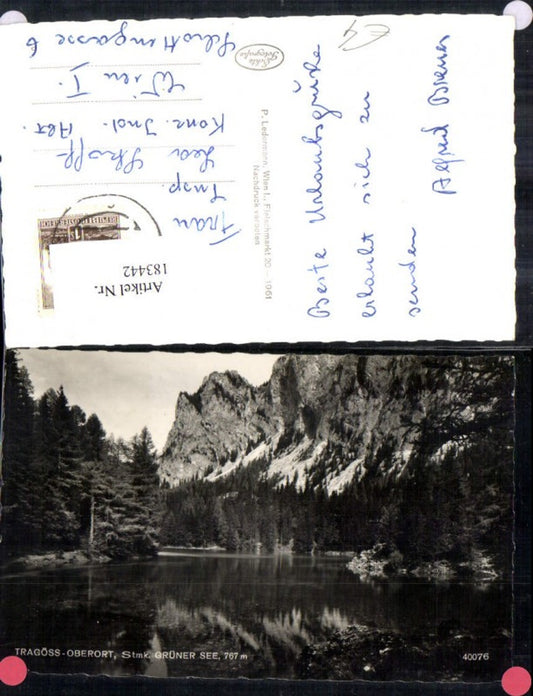 Beste Urlaubsgrüße
erlaubt sich zu
senden
Alfred
P. Ledermann, Wien I., Fleischmarkt 20 - 1961
Nachdruck verboten
Echte
Fotografie
Frau
Insp.
Konz. Incl. Abt.
Wien I.
Schottengasse 6
REPUBLIK ÖSTERREICH
Artikel Nr.
183442
TRAGÖSS-OBERORT, Stmk. GRÜNER SEE, 767 m
40076